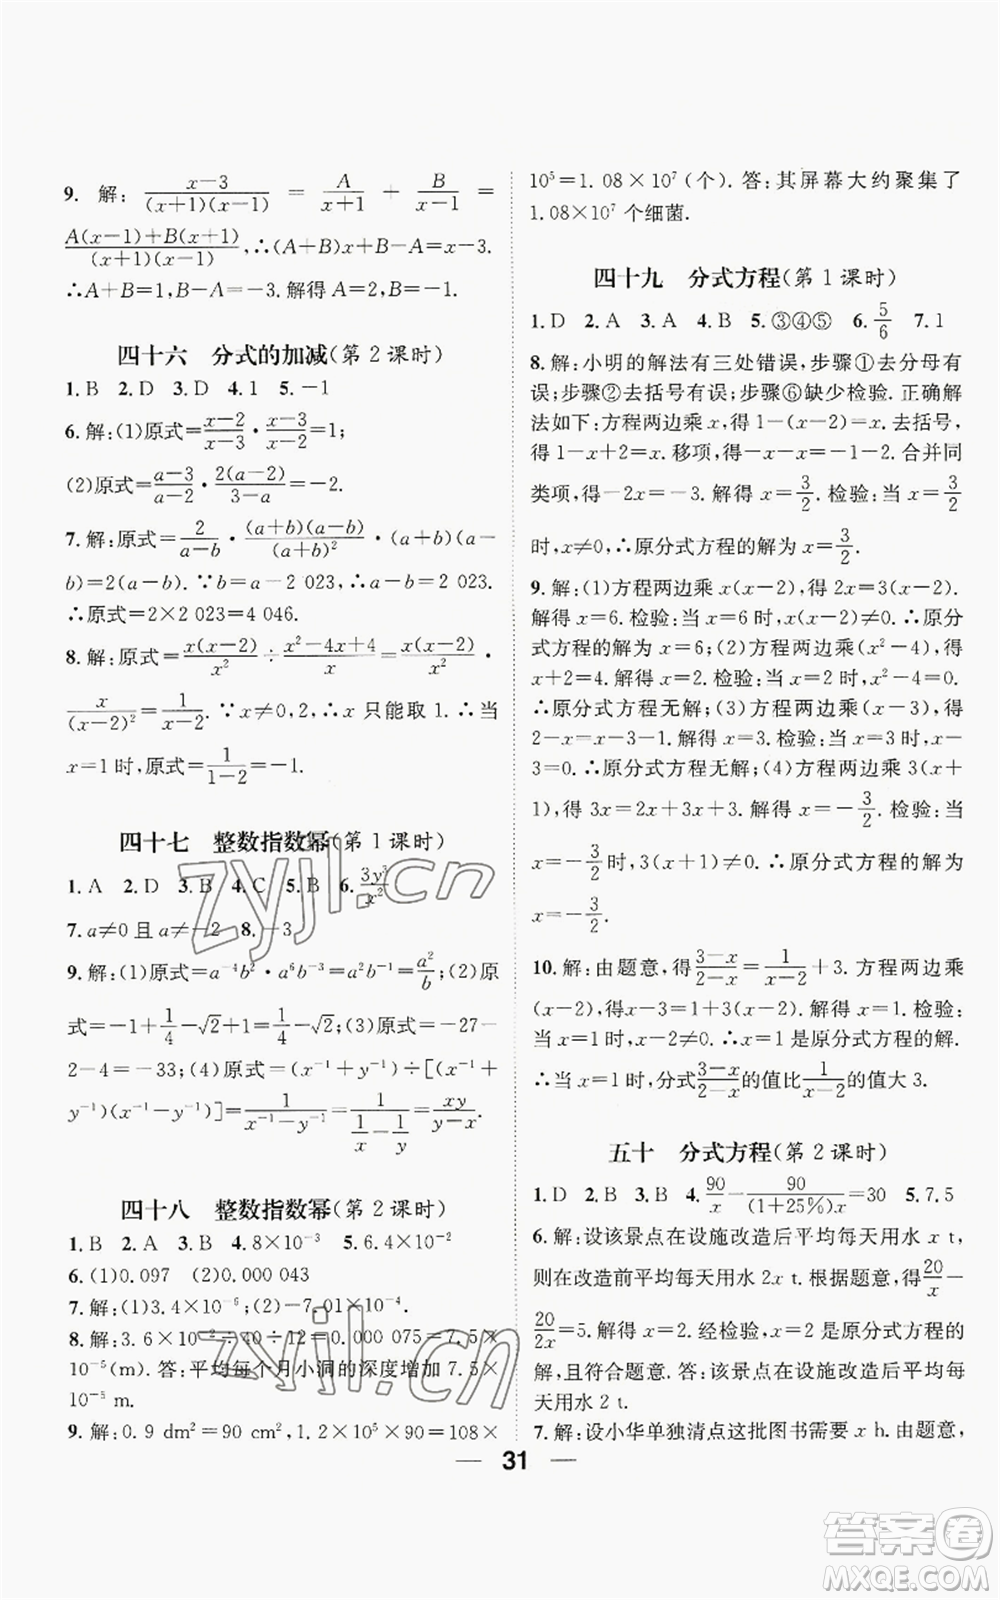 9. 解:\frac{x-3}{(x+1)(x-1)} = \frac{A}{x+1} + \frac{B}{x-1} =
\frac{A(x-1)+B(x+1)}{(x+1)(x-1)},∴(A+B)x+B-A=x-3.
∴A+B=1,B-A=-3.解得 A=2,B=-1.
四十六 分式的加减(第2课时)
1.B 2.D 3.D 4.1 5.-1
6.解:(1)原式=\frac{x-2}{x-3}·\frac{x-3}{x-2}=1;
(2)原式=\frac{a-3}{a-2}·\frac{2(a-2)}{3-a}=-2.
7.解:原式=\frac{2}{a-b}·\frac{(a+b)(a-b)}{(a+b)²}·(a+b)(a-
b)=2(a-b). ∵b=a-2 023,∴a-b=2 023.
∴原式=2×2 023=4 046.
8.解:原式=\frac{x(x-2)}{x²}÷\frac{x²-4x+4}{x}=\frac{x(x-2)}{x²}·
\frac{x}{(x-2)²}=\frac{1}{x-2}. ∵x≠0,2,∴x 只能取1.∴当
x=1时,原式=\frac{1}{1-2}=-1.
四十七 整数指数幂(第1课时)
1.A 2.D 3.B 4.C 5.B 6.\frac{3y³}{x²}
7.a≠0且a≠-2 8.-3
9.解:(1)原式=a⁻⁴b²·a⁶b⁻³=a²b⁻¹=\frac{a²}{b};(2)原
式=-1+\frac{1}{4}-√2+1=\frac{1}{4}-√2;(3)原式=-27-
2-4=-33;(4)原式=(x⁻¹+y⁻¹)÷[(x⁻¹+
y⁻¹)(x⁻¹-y⁻¹)]=\frac{1}{x⁻¹-y⁻¹}=\frac{1}{\frac{1}{x}-\frac{1}{y}}=\frac{xy}{y-x}.
四十八 整数指数幂(第2课时)
1.B 2.A 3.D 4.8×10⁻³ 5.6.4×10⁻²
6.(1)0.097 (2)0.000 043
7.解:(1)3.4×10⁻⁶;(2)-7.01×10⁻⁴.
8.解:3.6×10⁻²÷40÷12=0.000 075=7.5×
10⁻⁵(m).答:平均每个月小洞的深度增加7.5×
10⁻⁵ m.
9.解:0.9 dm²=90 cm²,1.2×10⁵×90=108×
10⁵=1.08×10⁷(个).答:其屏幕大约聚集了
1.08×10⁷个细菌.
四十九 分式方程(第1课时)
1.D 2.A 3.A 4.B 5.③④⑤ 6.\frac{5}{6} 7.1
8.解:小明的解法有三处错误,步骤①去分母有
误;步骤②去括号有误;步骤⑥缺少检验.正确解
法如下:方程两边乘x,得1-(x-2)=x.去括号,
得1-x+2=x.移项,得-x-x=-1-2.合并同
类项,得-2x=-3.解得x=\frac{3}{2}.检验:当x=\frac{3}{2}
时,x≠0,∴原分式方程的解为x=\frac{3}{2}.
9.解:(1)方程两边乘x(x-2),得2x=3(x-2).
解得x=6.检验:当x=6时,x(x-2)≠0.∴原分
式方程的解为x=6;(2)方程两边乘(x²-4),得
x+2=4.解得x=2.检验:当x=2时,x²-4=0.
∴原分式方程无解;(3)方程两边乘(x-3),得
2-x=x-3-1.解得x=3.检验:当x=3时,x-
3=0.∴原分式方程无解;(4)方程两边乘3(x+
1),得3x=2x-(3x+3).解得x=-\frac{3}{2}.检验:当
x=-\frac{3}{2}时,3(x+1)≠0.∴原分式方程的解为
x=-\frac{3}{2}.
10.解:由题意,得\frac{3-x}{2-x}=\frac{1}{x-2}+3.方程两边乘
(x-2),得x-3=1+3(x-2).解得x=1.检验:
当x=1时,x-2≠0.∴x=1是原分式方程的解.
∴当x=1时,分式\frac{3-x}{2-x}的值比\frac{1}{x-2}的值大3.
五十 分式方程(第2课时)
1.D 2.B 3.B 4.\frac{90}{x}-\frac{90}{(1+25%)x}=30 5.7.5
6.解:设该景点在设施改造后平均每天用水x t,
则在改造前平均每天用水2x t.根据题意,得\frac{20}{x}-
\frac{20}{2x}=5.解得x=2.经检验,x=2是原分式方程的
解,且符合题意.答:该景点在设施改造后平均每
天用水2 t.
7.解:设小华单独清点这批图书需要x h.由题意,
31
zyjl.cn
zyjl.cn
答案圈
MXQE.COM